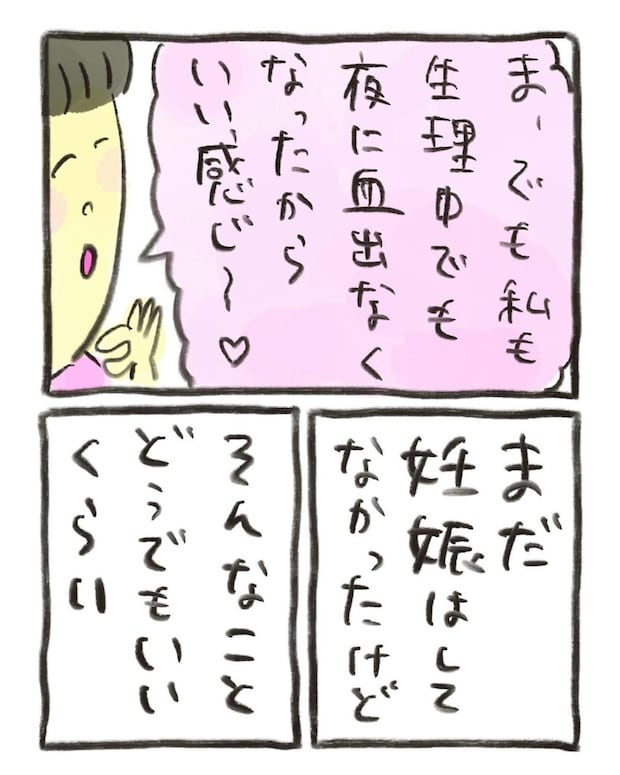 まーでも私も
生理中でも
夜に血出なく
なったから
いい感じ～♡
まだ
妊娠はして
なかったけど
そんなこと
どうでもいい
くらい